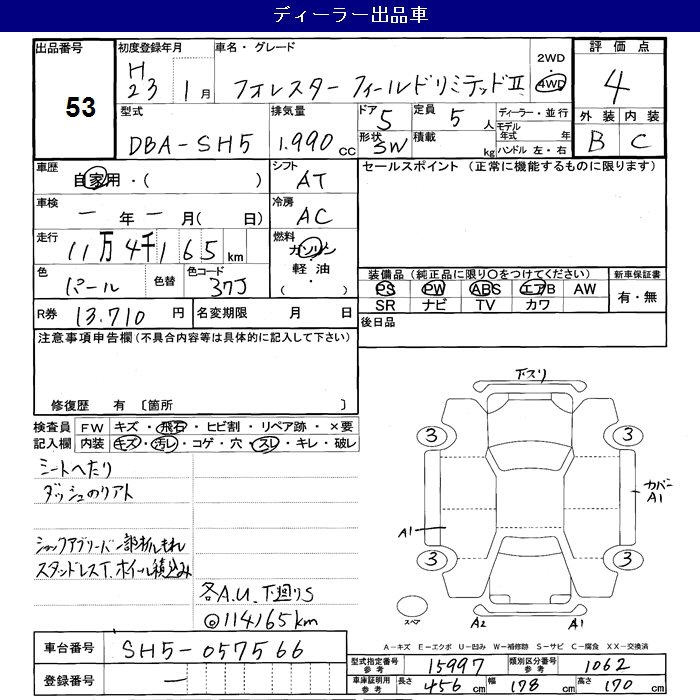 ディーラー出品車
出品番号 初度登録年月 車名・グレード 評価点
53
H23 1月 フォレスター フィールドリミテッドⅡ 2WD 4WD 4
型式 排気量 ドア 5 定員 5人 ディーラー・並行 外装 内装
DBA-SH5 1.990cc 形状 5W 積載 kg モデル年式 年 ハンドル 左・右 B C
車歴 自家用・( ) シフト AT セールスポイント (正常に機能するものに限ります)
車検 ー年ー月( 日) 冷房 AC
走行 11万4千165km 燃料 ガソリン
軽油
・
( )
色 パール 色替 色コード 37J 装備品 (純正品に限り○をつけてください) 新車保証書
PS PW ABS エアB AW 有・無
SR ナビ TV カワ
R券 13.710円 名変期限 月 日 後日品
注意事項申告欄 (不具合内容等は具体的に記入して下さい)
修復歴 有 〔箇所 〕
検査員 FW キズ・飛石・ヒビ割・リペア跡・×要
記入欄 内装 キズ・汚レ・コゲ・穴・スレ・キレ・破レ
シートへたり
ダッシュのりアト
ショックアブソーバー一部オイルもれ
スタッドレスT.ホイール積込み
各A.U.下廻りS
◎114165km
下スリ
3 3
カバー
A1
A1
3 3
スペア A2 A1
車台番号 SH5-057566
登録番号 ー
A-キズ E-エクボ U-凹み W-補修跡 S-サビ C-腐食 XX-交換済
型式指定番号 参考 15997 類別区分番号 参考 1062
車庫証明用 参考 長さ 456cm 幅 178cm 高さ 170cm